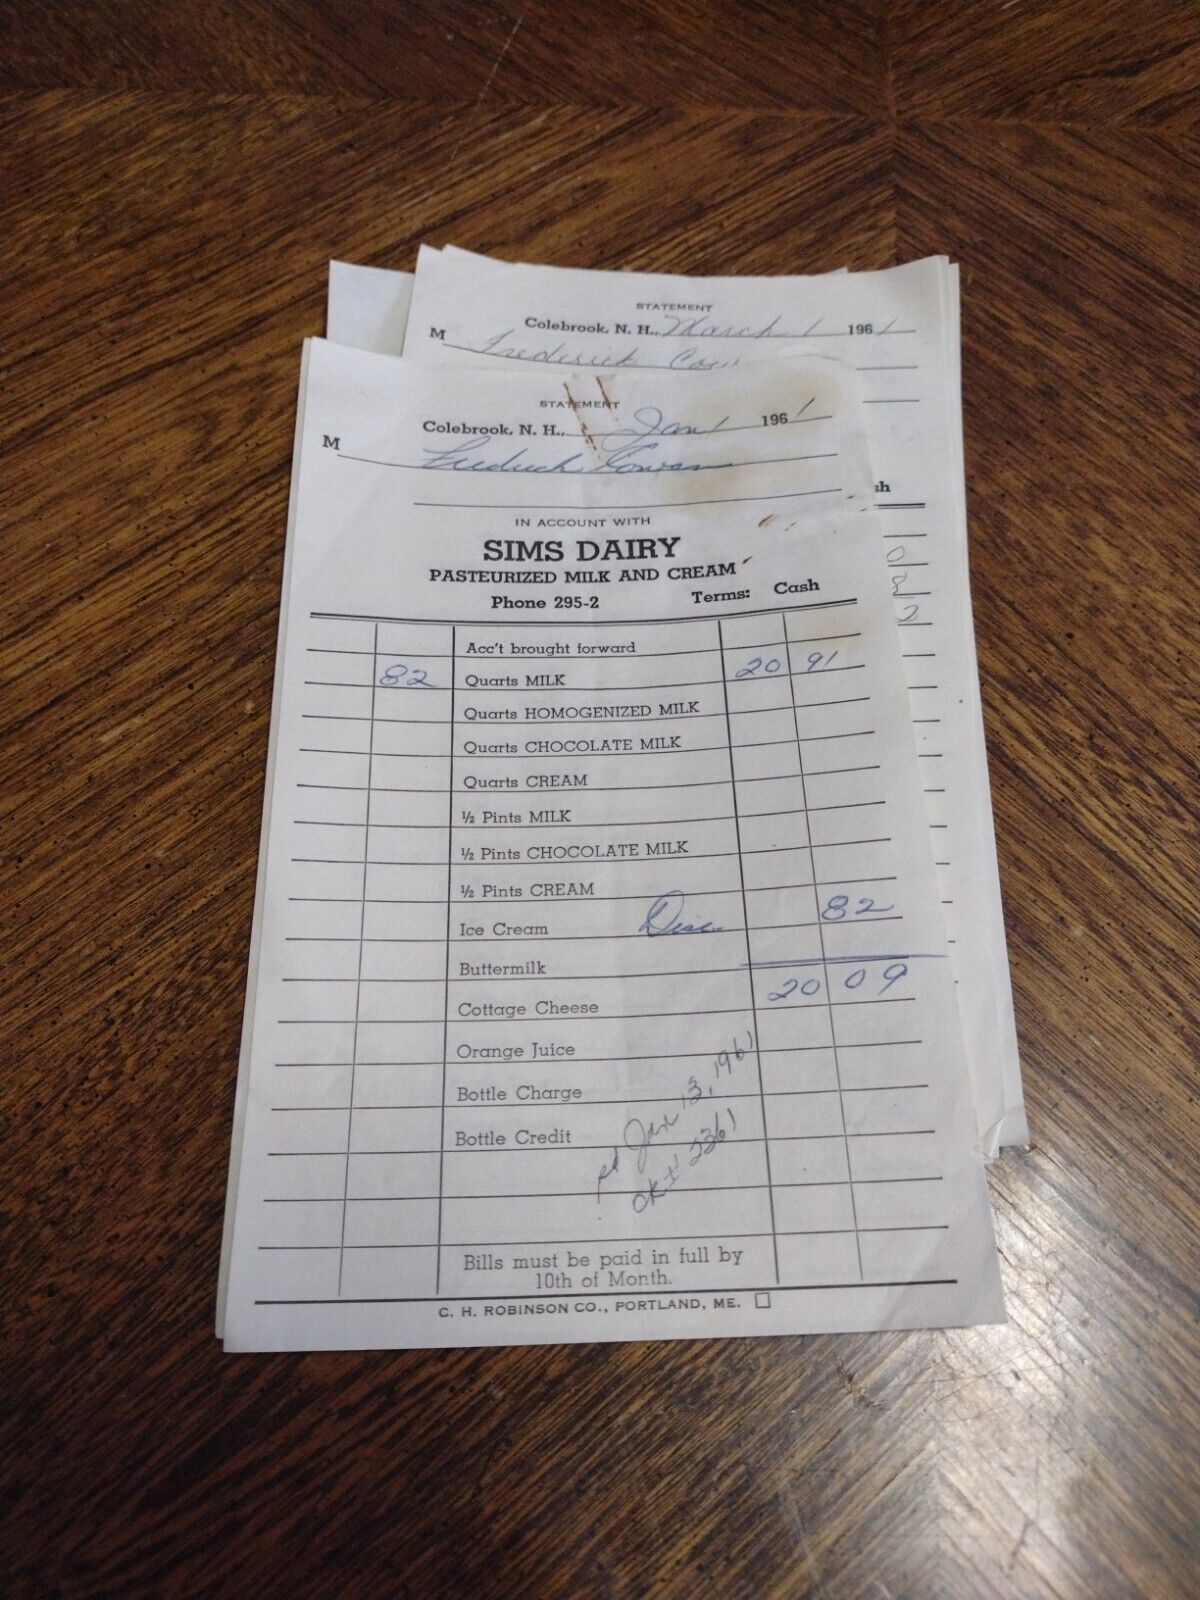 STATEMENT
Colebrook, N. H., March 1 1961
M Frederick
STATEMENT
Colebrook, N. H., Jan 1 1961
M Fredrick Cowan
IN ACCOUNT WITH
SIMS DAIRY
PASTEURIZED MILK AND CREAM
Phone 295-2 Terms: Cash
sh
0
8
2
Acc't brought forward
82 Quarts MILK 20 91
Quarts HOMOGENIZED MILK
Quarts CHOCOLATE MILK
Quarts CREAM
½ Pints MILK
½ Pints CHOCOLATE MILK
½ Pints CREAM
Ice Cream Disc 82
Buttermilk
Cottage Cheese 20 09
Orange Juice
Bottle Charge
Bottle Credit
pd Jan 13, 1961
CK # 2361
Bills must be paid in full by
10th of Month.
C. H. ROBINSON CO., PORTLAND, ME.